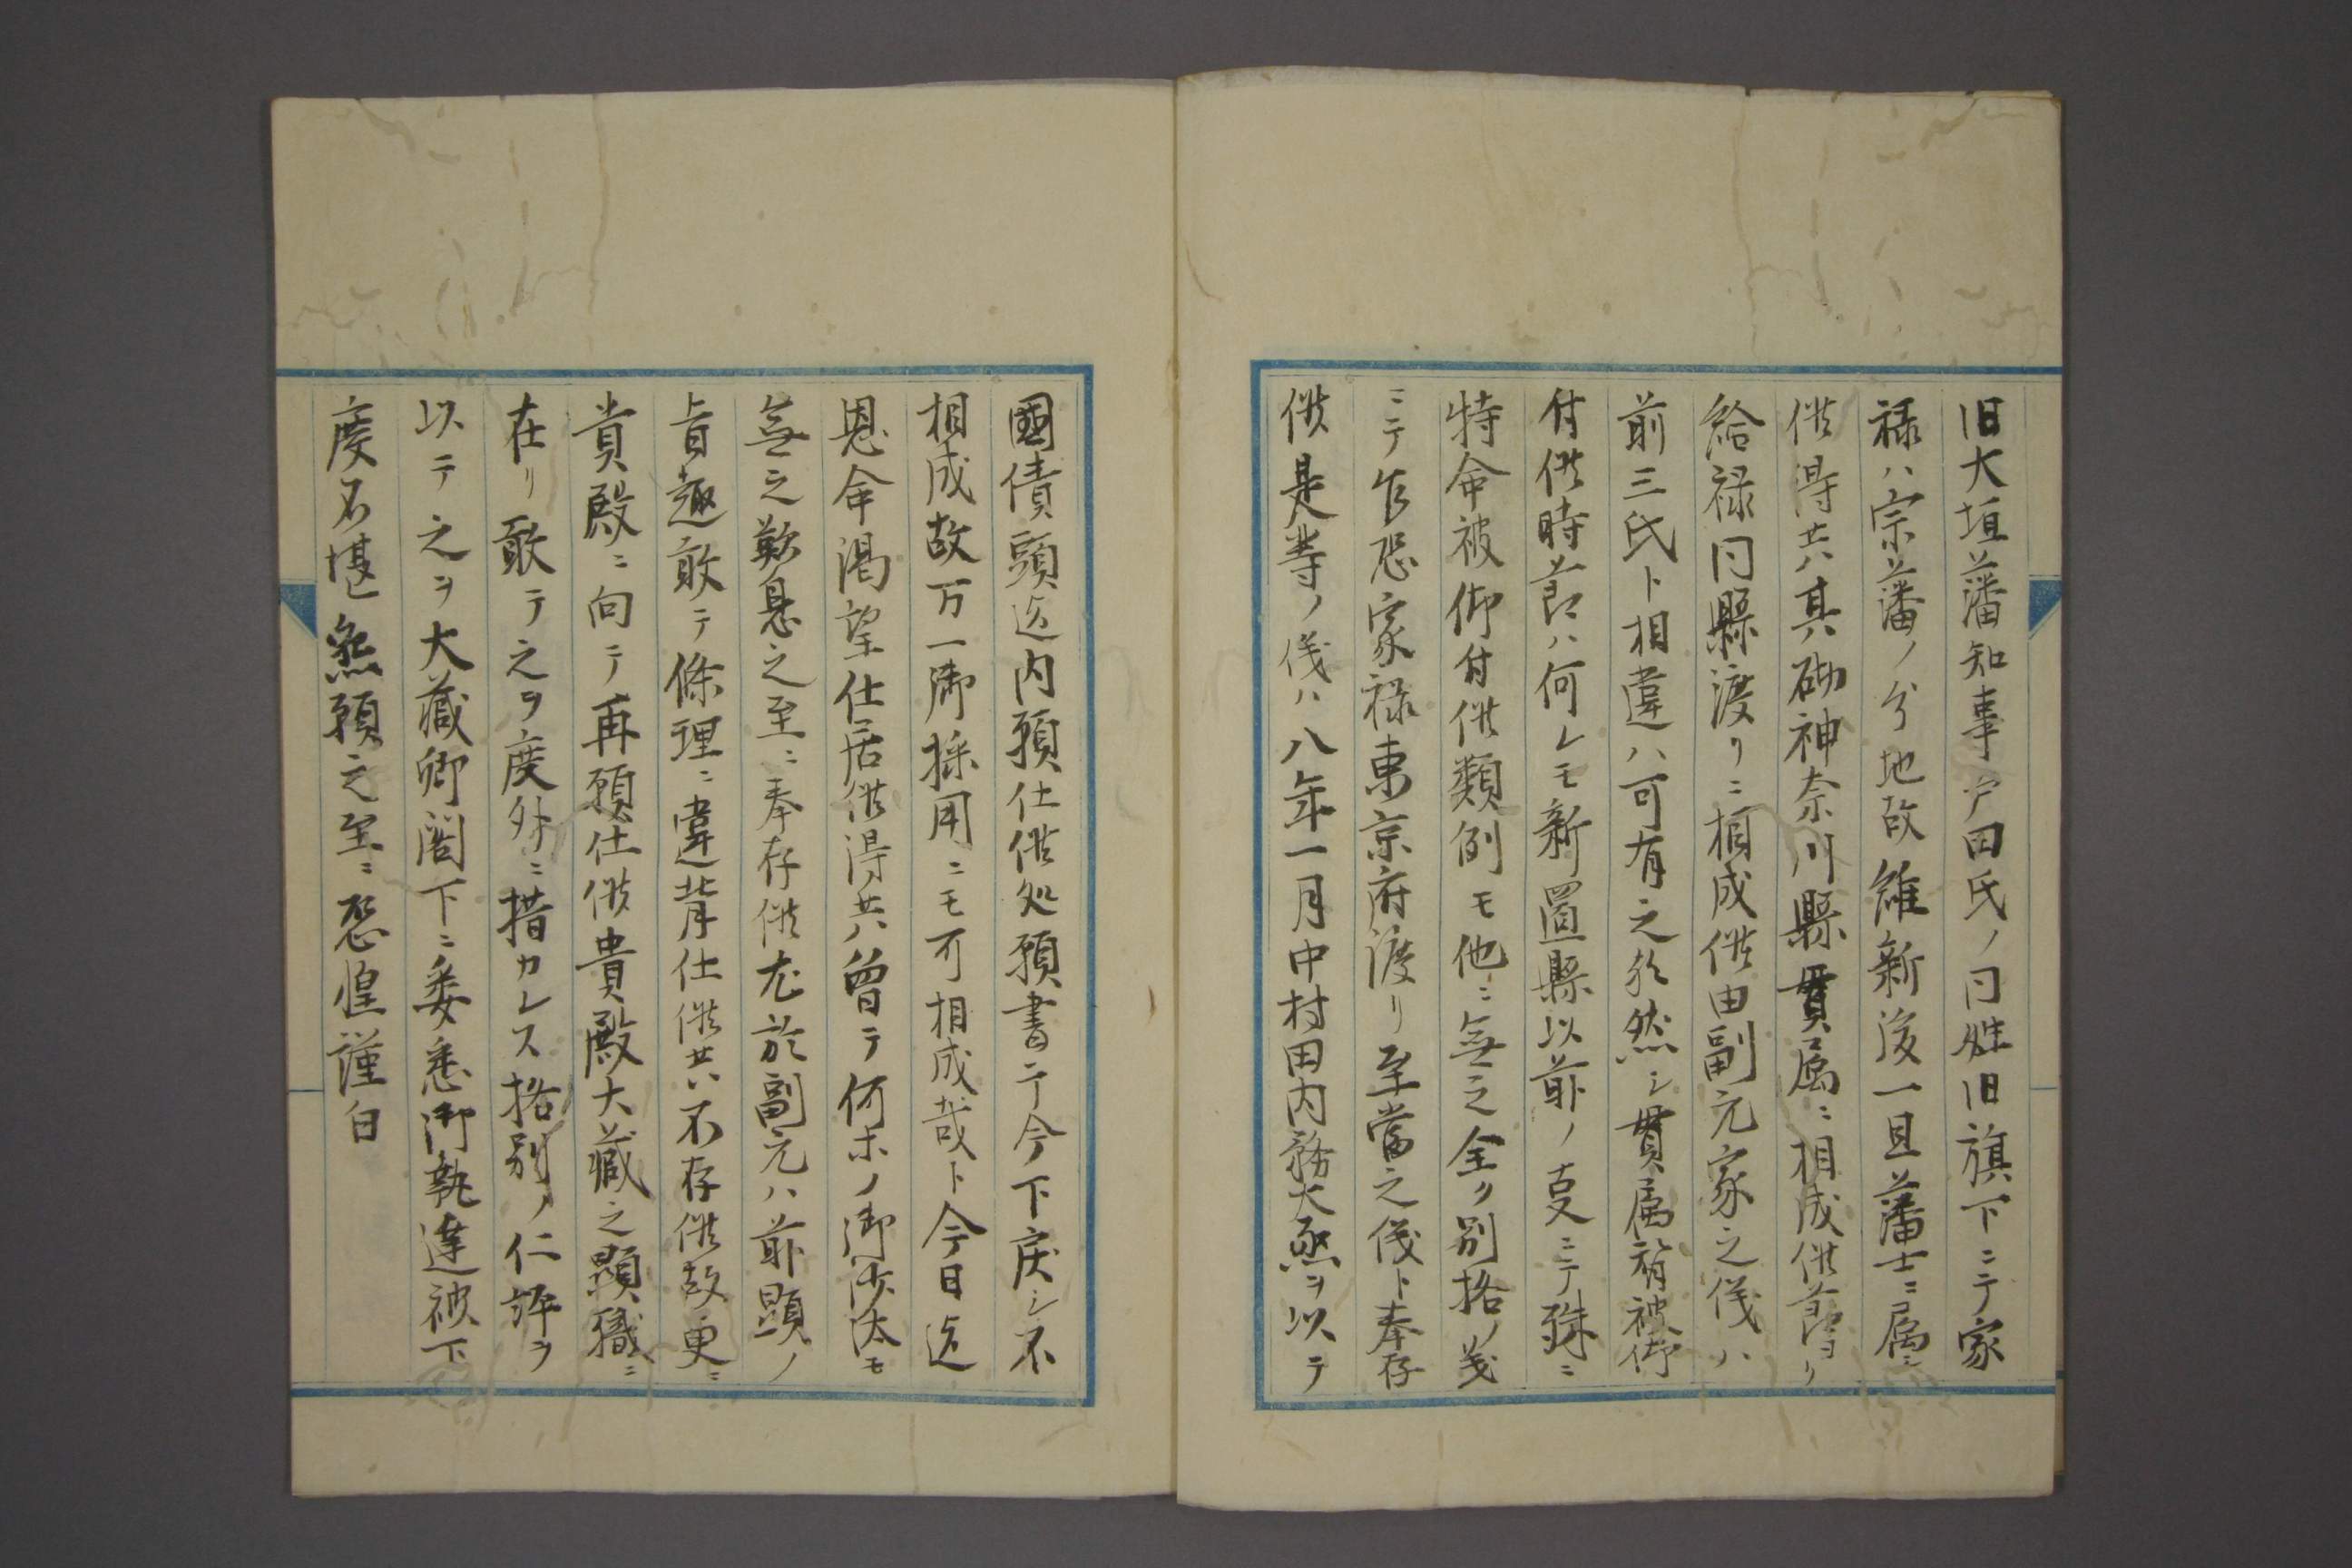 旧大垣藩知事戸田氏ノ同姓旧旗下ニテ家
禄ハ宗藩ノ分地故維新後一旦藩士ニ属シ
候得共其砌神奈川縣貫属ニ相成候節ヨリ
給禄同縣渡リニ相成候由副元家之儀ハ
前三氏ト相違ハ可有之候然シ貫属替被御
付候時節ハ何レモ新置縣以前ノ支ニテ殊ニ
特命被御付候類例モ他ニ無之全ク別格ノ義
ニテ乍恐家禄東京府渡リ至當之儀ト奉存
候是等ノ儀ハ八年一月中村田内務大丞ヲ以テ
國債頭迄内願仕候処願書ニテ今下戻シ不
相成故万一御採用ニモ可相成哉ト今日迄
恩命渇望仕居候得共曽テ何ホノ御沙汰モ
無之歎息之至ニ奉存候尤於副元ハ前顕ノ
旨趣敢テ條理ニ違背仕候共不存候故更ニ
貴殿ニ向テ再願仕候貴殿大藏之顕職ニ
在リ敢テ之ヲ度外ニ措カレス格別ノ仁評ヲ
以テ之ヲ大藏卿閣下ニ委悉御執達被下
度不堪懇願之至ニ恐惶謹白